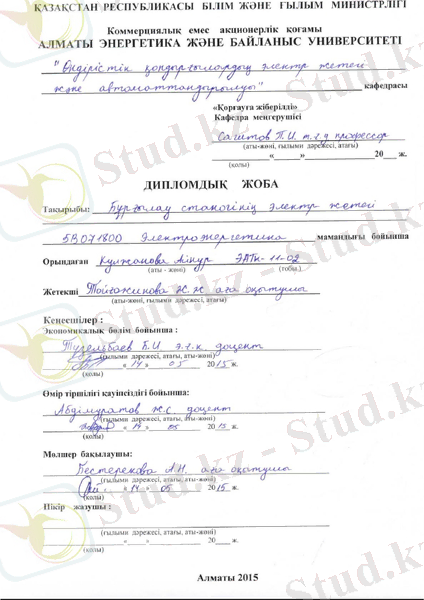 ҚАЗАҚСТАН РЕСПУБЛИКАСЫ БІЛІМ ЖӘНЕ ҒЫЛЫМ МИНИСТРЛІГІ
Коммерциялық емес акционерлік қоғамы
АЛМАТЫ ЭНЕРГЕТИКА ЖӘНЕ БАЙЛАНЫС УНИВЕРСИТЕТІ
"Өндірістік қондырғылардың электр жетегі
және автоматтандырылуы" кафедрасы
«Қорғауға жіберілді»
Кафедра меңгерушісі
Сагитов П.И. т.ғ.д профессор
(аты-жөні, ғылыми дәрежесі, атағы)
« » 20 ж.
(қолы)
ДИПЛОМДЫҚ ЖОБА
Тақырыбы: Бұрғылау станогінің электр жетегі
5В071800 Электроэнергетика мамандығы бойынша
Орындаған Кулжанова Айнур ЭАТк-11-02
(аты - жөні) (тобы)
Жетекші Тойгожинова Ж.Ж аға оқытушы
(аты-жөні, ғылыми дәрежесі, атағы)
Кеңесшілер :
Экономикалық бөлім бойынша :
Тузелбаев Б.И э.ғ.к. доцент
(ғылыми дәрежесі, атағы, аты-жөні)
« 14 » 05 2015 ж.
(қолы)
Өмір тіршілігі қауіпсіздігі бойынша:
Абдімұратов Ж.С доцент
(ғылыми дәрежесі, атағы, аты-жөні)
« 14 » 05 2015 ж.
(қолы)
Мөлшер бақылаушы:
Бестерекова А.Н. аға оқытушы
(ғылыми дәрежесі, атағы, аты-жөні)
« 14 » 05 2015 ж.
(қолы)
Пікір жазушы :
(ғылыми дәрежесі, атағы, аты-жөні)
« » 20 ж.
(қолы)
Алматы 2015
Stud.kz - Stud.kz